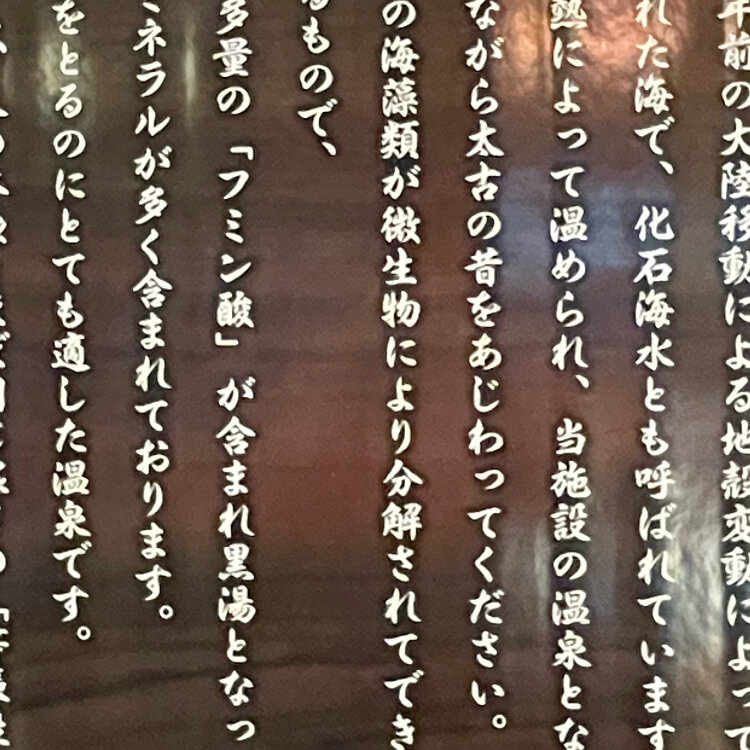 年前の大陸移動による地殻変動によって
れた海で、化石海水とも呼ばれています
熱によって温められ、当施設の温泉とな
ながら太古の昔をあじわってください。
の海藻類が微生物により分解されてでき
るもので、
多量の「フミン酸」が含まれ黒湯となっ
ミネラルが多く含まれております。
をとるのにとても適した温泉です。